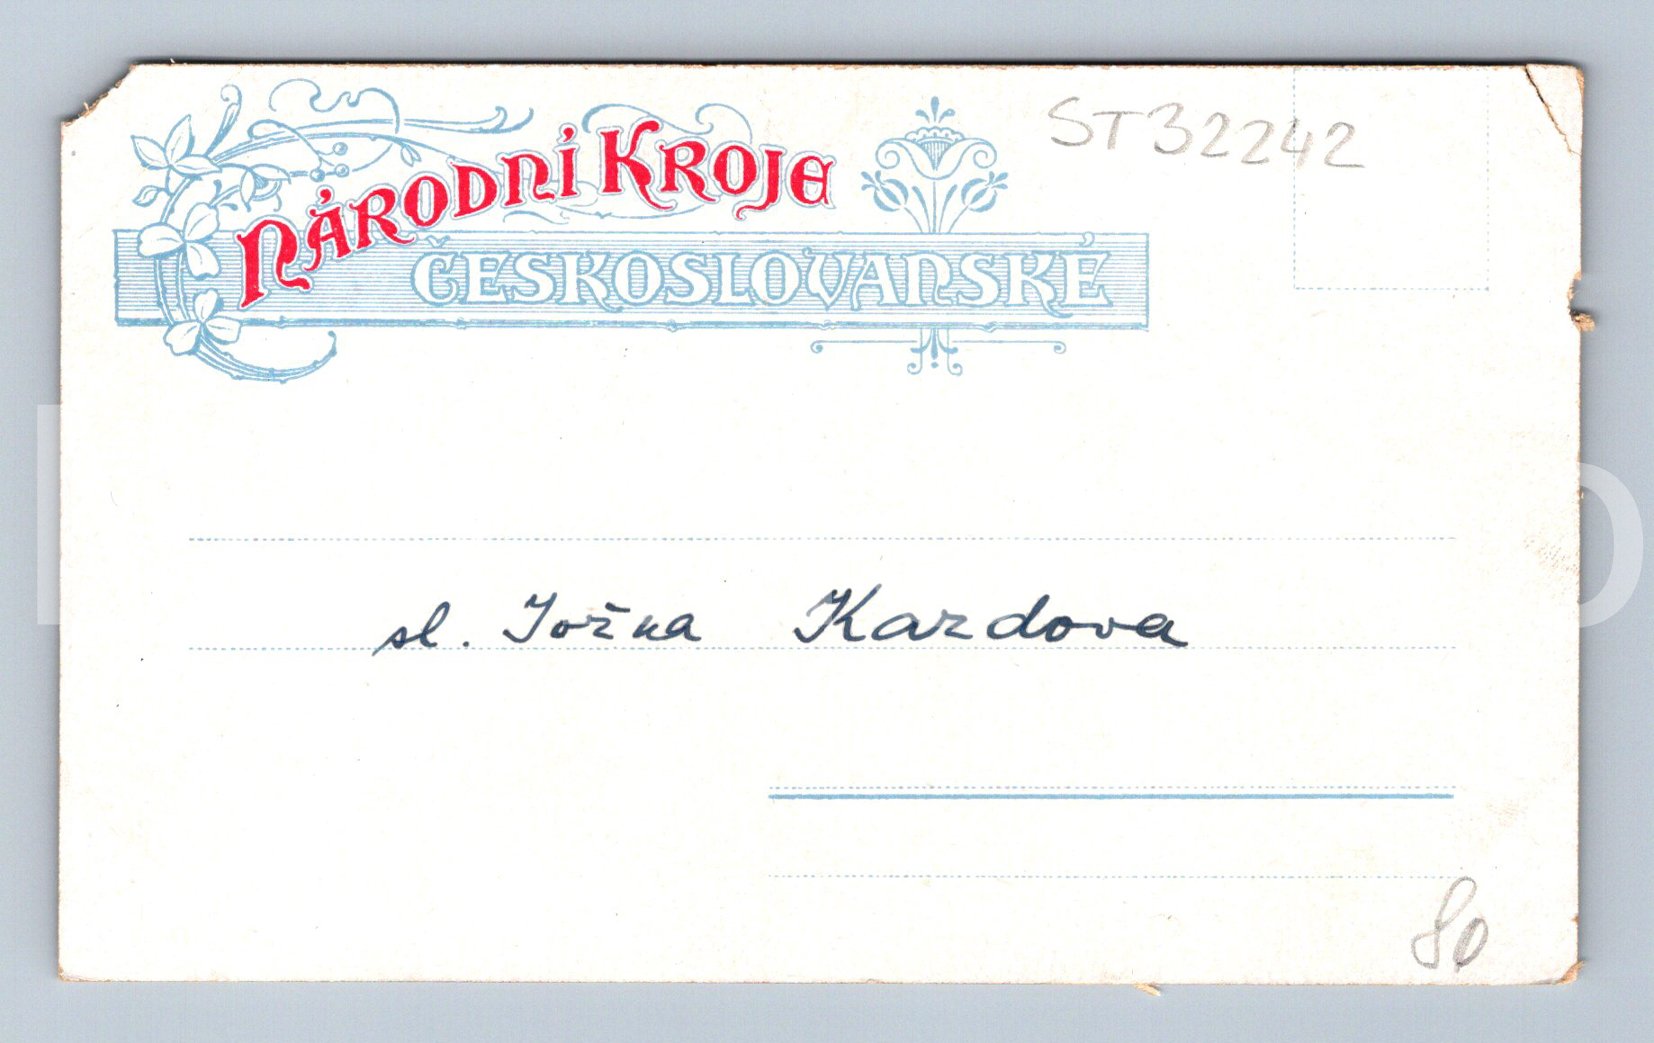 NÁRODNÍ KROJE
ČESKOSLOVANSKÉ
ST32242
sl. Jožna Kazdova
80